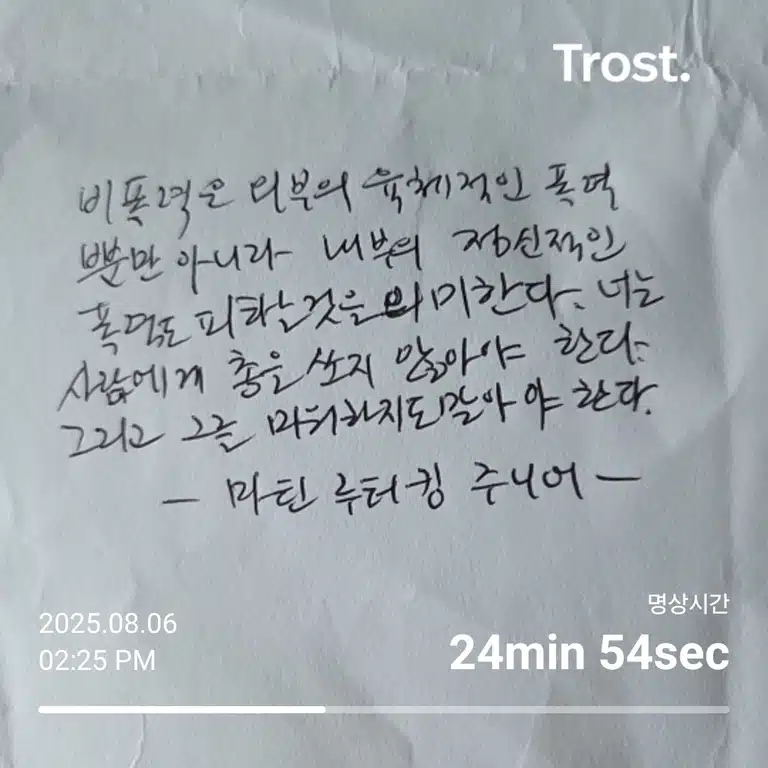 Trost.
비폭력은 외부의 육체적인 폭력
뿐만 아니라 내부의 정신적인
폭력도 피하는것을 의미한다. 너는
사람에게 총을 쏘지 않아야 한다.
그리고 그를 마워하지도말아야 한다.
- 마틴 루터킹 주니어 -
2025.08.06
02:25 PM
명상시간
24min 54sec